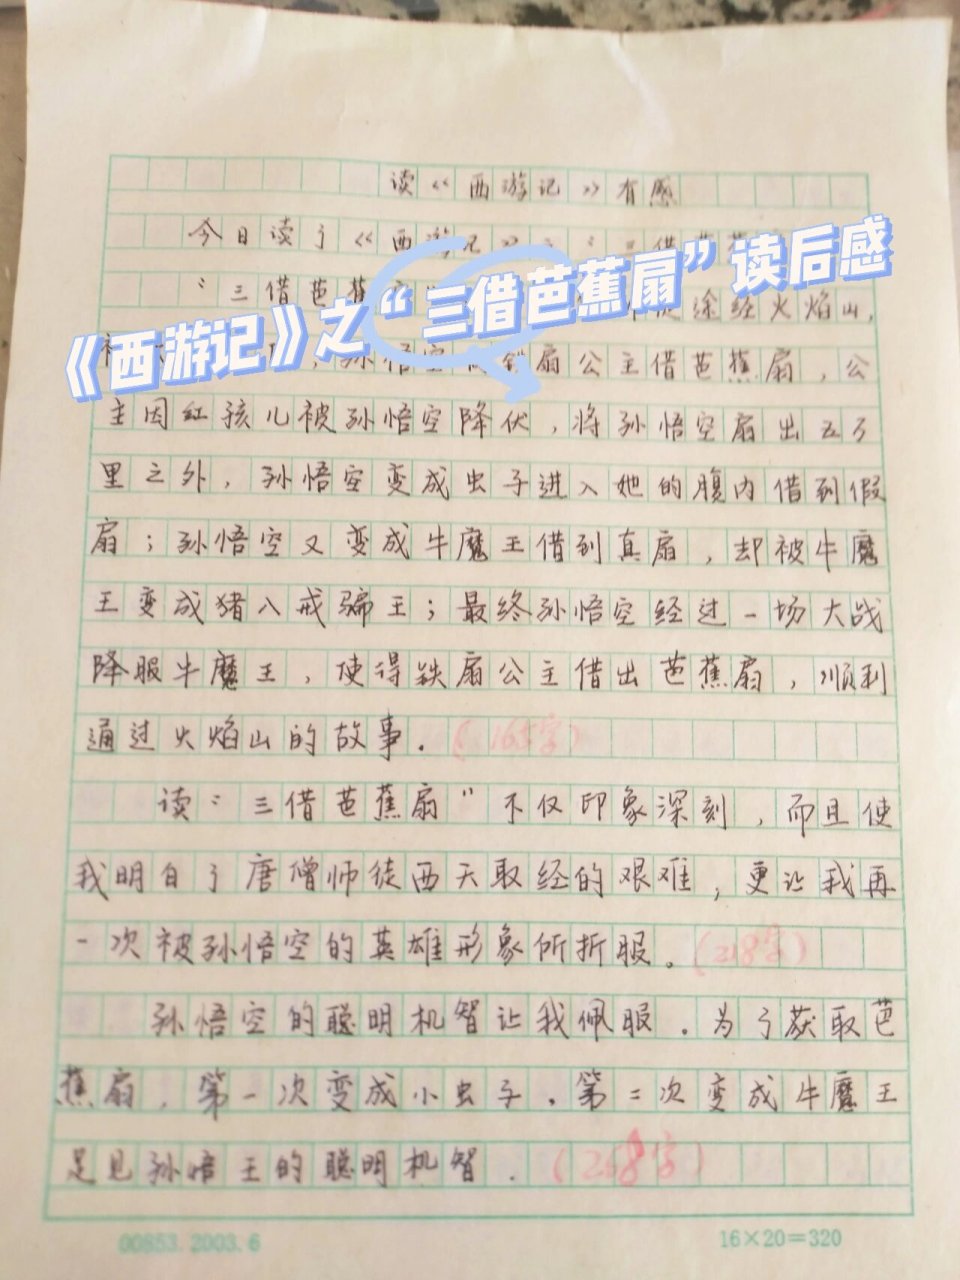 读《西游记》有感
今日读了《西游记》之“三借芭蕉
《西游记》之“三借芭蕉扇”读后感
“三借芭蕉扇 途经火焰山，
孙悟空向铁扇公主借芭蕉扇，公
主因红孩儿被孙悟空降伏，将孙悟空扇出五万
里之外，孙悟空变成虫子进入她的腹内借到假
扇；孙悟空又变成牛魔王借到真扇，却被牛魔
王变成猪八戒骗王；最终孙悟空经过一场大战
降服牛魔王，使得铁扇公主借出芭蕉扇，顺利
通过火焰山的故事。（165字）
读“三借芭蕉扇”不仅印象深刻，而且使
我明白了唐僧师徒西天取经的艰难，更让我再
一次被孙悟空的英雄形象所折服。（218字）
孙悟空的聪明机智让我佩服。为了获取芭
蕉扇，第一次变成小虫子，第二次变成牛魔王
足见孙悟王的聪明机智。（268字）
00853.2003.6
16×20=320